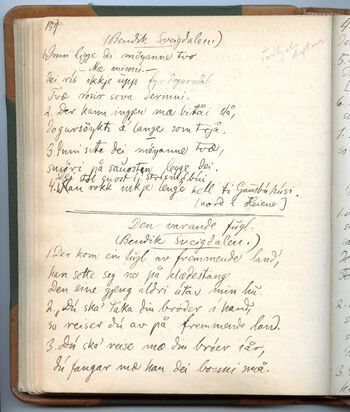 154
(Bendik Sveigdalen.)
1. Inni ligge di möyanne tvo
– Aa minni –
Dei ris ikkje upp fyr dogurmål
Tvæ röser sova dermni.
2. Der kann ingen mæ bitåi slå,
Dogursöykti å lange som trjå.
3. Inni sita dei möyanne två,
smöri på sauosten legge dei.
4. Han rökk ikkje lenge hell ti Gausbuhusi.
(nord i Heiane)
Den varande fugl.
(Bendik Sveigdalen.)
1. Der kom ein fugl av fremmende land,
han sette seg ne på klædestang
Den eine gjeng aldri utav min hu
2. „Du ska' taka din broder i hand,
so reiser du av på fremmende land.
3. Du ska' reise mæ din bröer i år,
du fangar mæ han dei bonni små.